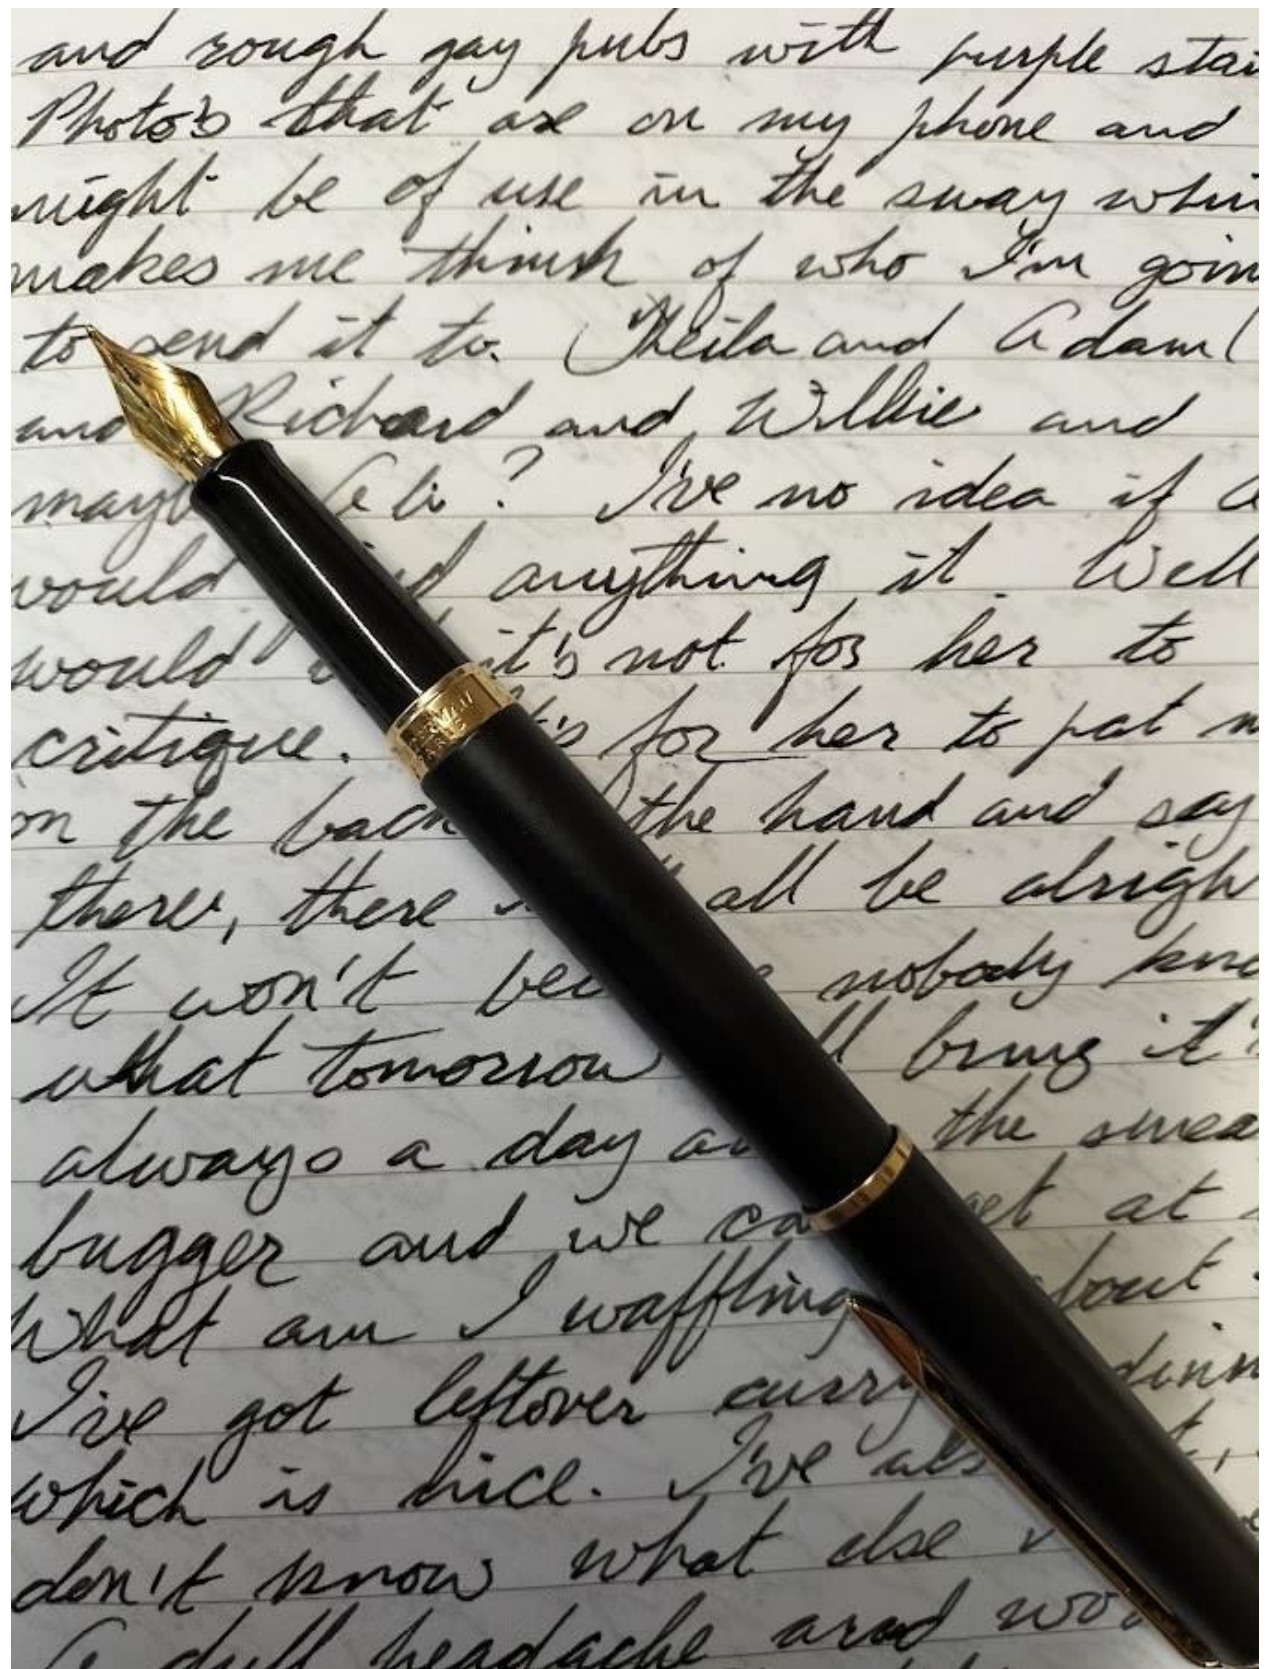 and rough gay pubs with purple stai
Photo's that are on my phone and
might be of use in the sway whi
makes me think of who I'm goin
to send it to. (Sheila and Adam(
and Richard and Willie and
mayb Ali? I've no idea if a
would anything it. Well
would it's not for her to
critique. It's for her to pat m
on the back the hand and say
there, there all be alrigh
It won't be nobody kno
what tomorrow bring it'
always a day a the swea
bugger and we ca get at
What am I waffling bout
I've got leftover curry dinn
which is nice. I've als t,
don't know what else
A dull headache and
WATERMAN
PARIS